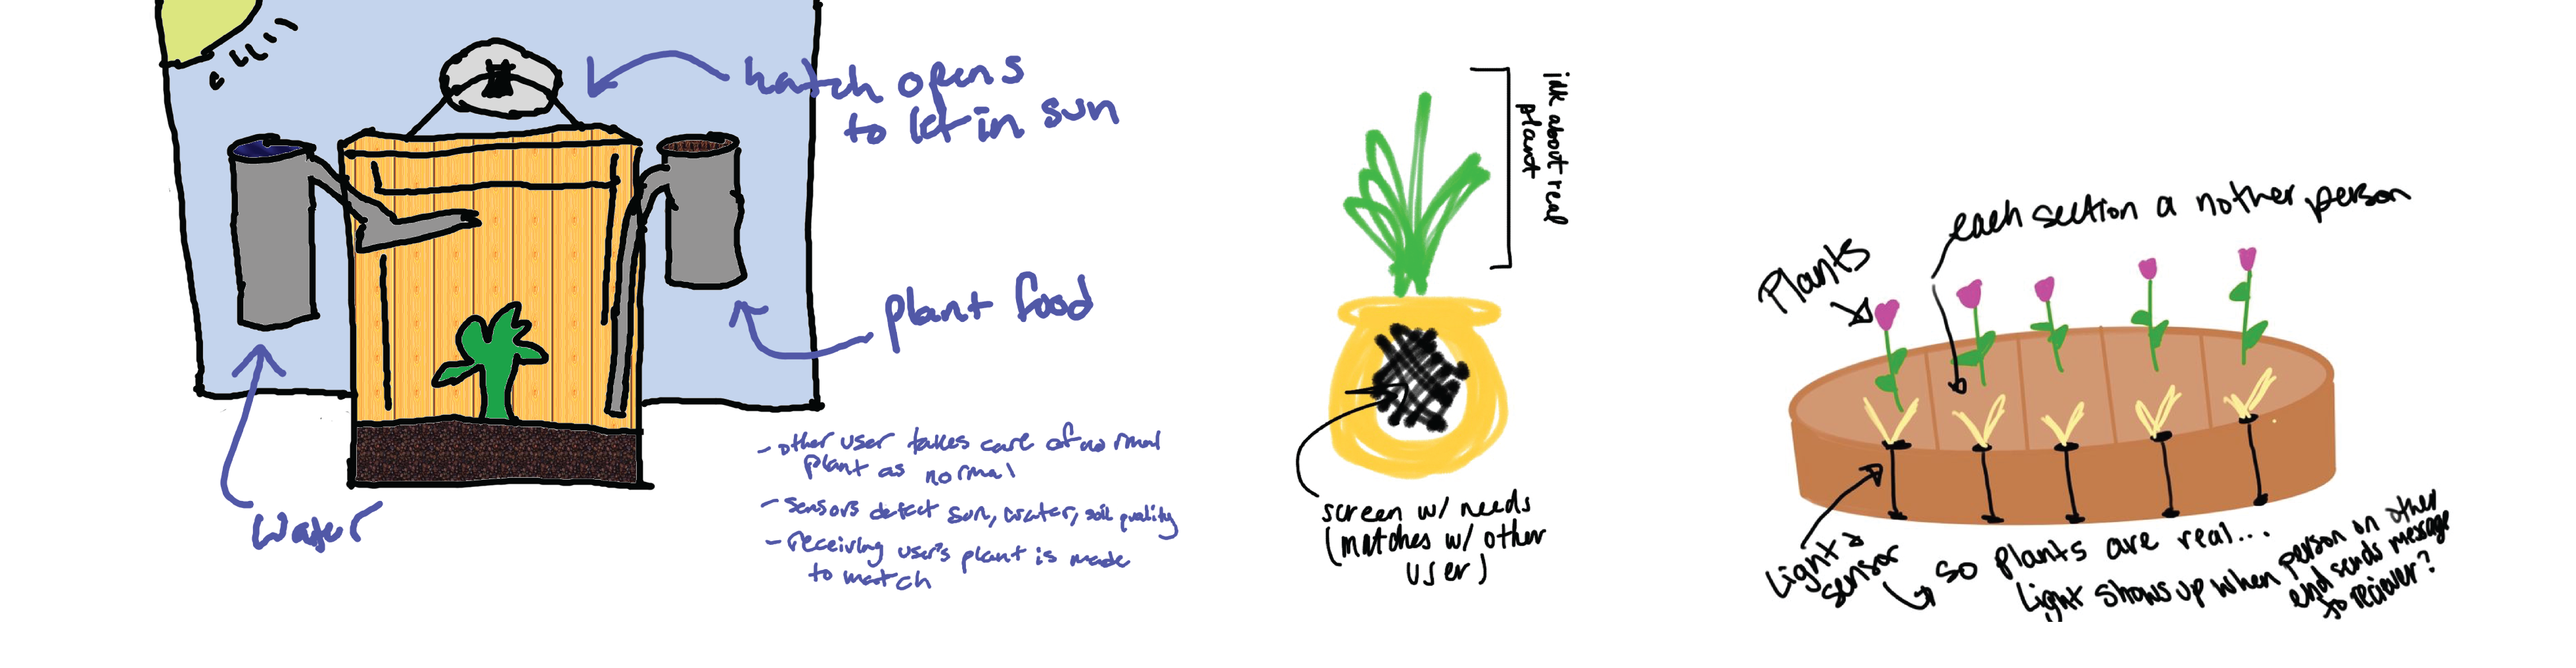 hatch opens
to let in sun
plant food
water
- other user takes care of normal
plant as normal
- sensors detect sun, water, soil quality
- receiving user's plant is made
to match
idk about real
plant
screen w/ needs
(matches w/ other
user)
Plants
each section a nother person
light &
sensor
so plants are real...
light shows up when person on other
end sends message
to reciever?